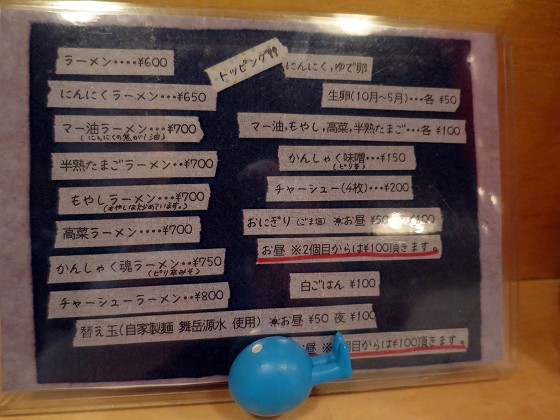 ラーメン････¥600
にんにくラーメン･･･¥650
マー油ラーメン･･･¥700
半熟たまごラーメン･･¥700
もやしラーメン･･･¥700
高菜ラーメン････¥700
かんしゃく魂ラーメン･･¥750
(ピリ辛みそ)
チャーシューラーメン･･¥800
替え玉(自家製麺 舞岳源水 使用) ☀お昼 ¥50 夜 ¥100
トッピング
にんにく,ゆで卵
生卵(10月～5月)･･･各 ¥50
マー油,もやし,高菜,半熟たまご･･･各 ¥100
かんしゃく味噌･･･¥150
(ピリ辛)
チャーシュー(4枚)･･･¥200
おにぎり(ごま塩) ☀お昼 ¥50 ¥100
お昼 ※2個目からは¥100頂きます。
白ごはん ¥100
お昼 ※ 個目からは¥100頂きます。